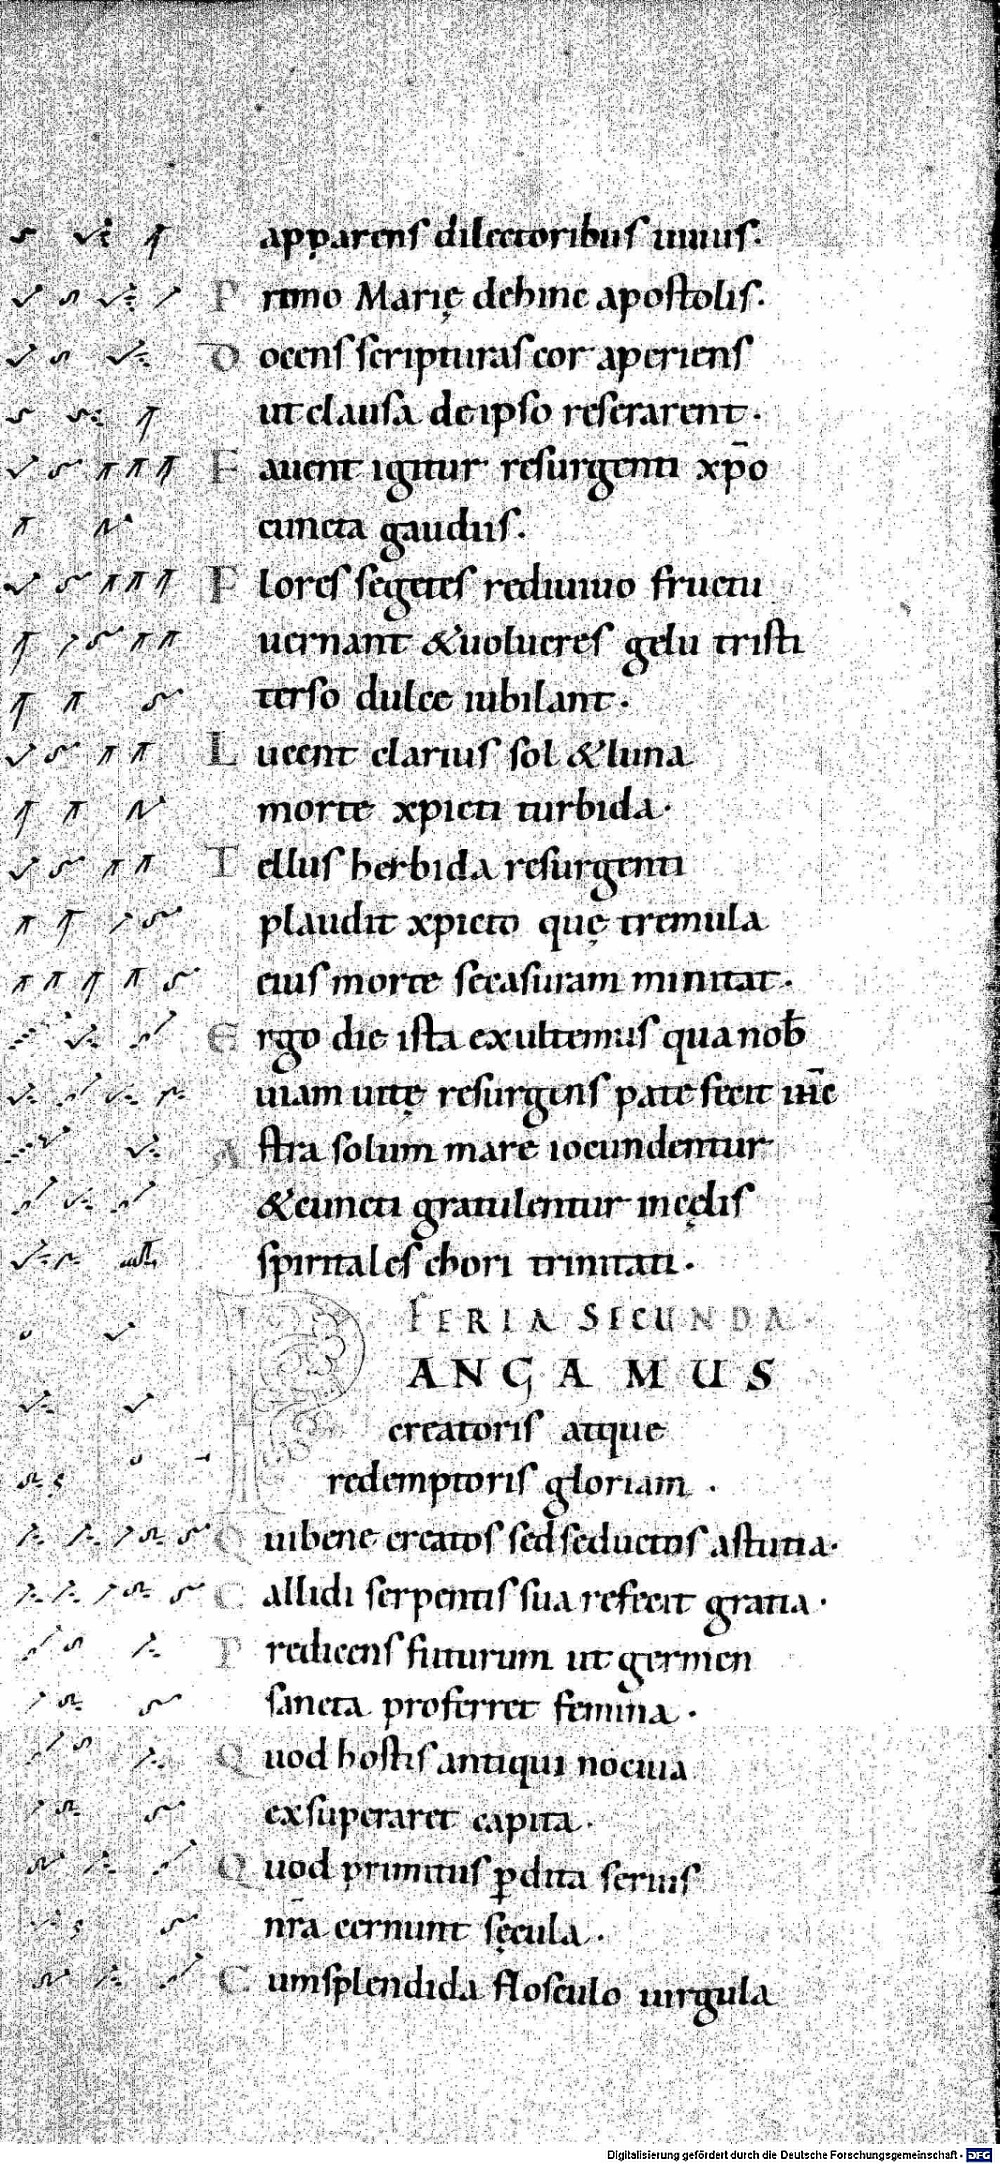 apparens dilectoribus uiuus.
Primo Marię dehinc apostolis.
Docens scripturas cor aperiens
ut clausa de ipso reserarent.
Fauent igitur resurgenti xp̄o
cuncta gaudiis.
Flores segetes rediuiuo fructu
uernant & uolucres gelu tristi
terso dulce iubilant.
Lucent clarius sol & luna
morte xpicti turbida.
Tellus herbida resurgenti
plaudit xpicto quę tremula
eius morte se casuram minitat.
Ergo die ista exultemus qua nob̄
uiam uitę resurgens patefecit
Astra solum mare iocundentur
& cuncti gratulentur in cęlis
spiritales chori trinitati.
FERIA SECUNDA.
PANGAMUS
creatoris atque
redemptoris gloriam.
Qui bene creatos sed seductos astutia.
Callidi serpentis sua refecit gratia.
Predicens futurum ut germen
sancta proferret femina.
Quod hostis antiqui nociua
exsuperaret capita.
Quod primitus ꝑdita seruis
nr̄a cernunt sęcula.
Cum splendida flosculo uirgula
Digitalisierung gefördert durch die Deutsche Forschungsgemeinschaft - DFG